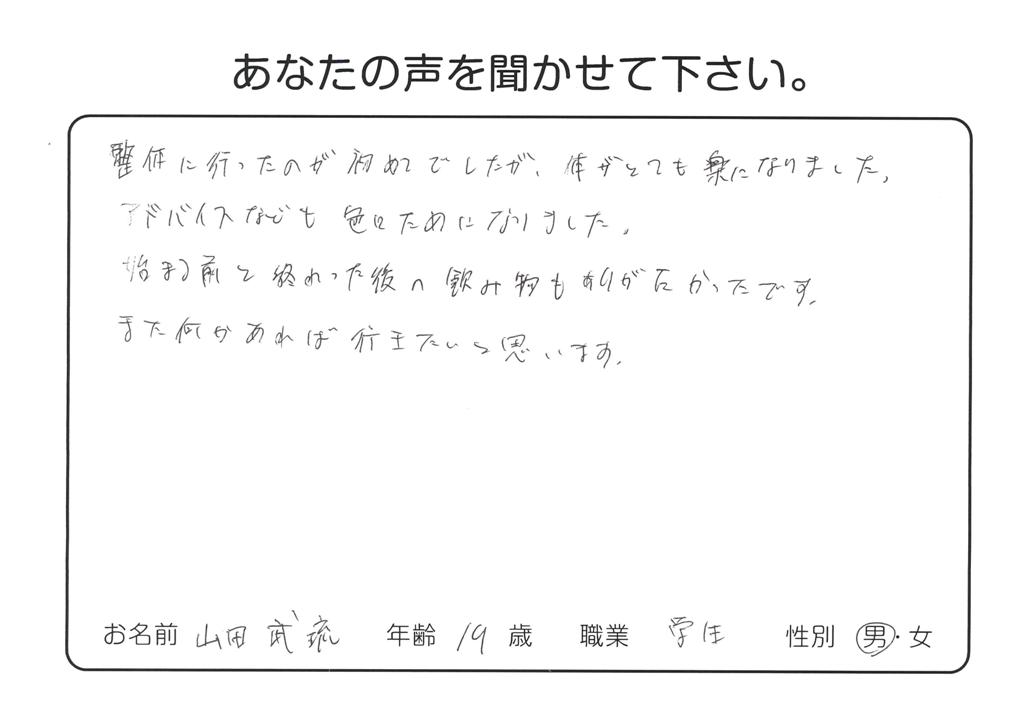 あなたの声を聞かせて下さい。
整体に行ったのが初めてでしたが、体がとても楽になりました。
アドバイスなども色々ためになりました。
始まる前と終わった後の飲み物もありがたかったです。
また何かあれば行きたいと思います。
お名前 山田 武琉 年齢 19 歳 職業 学生 性別 男・女